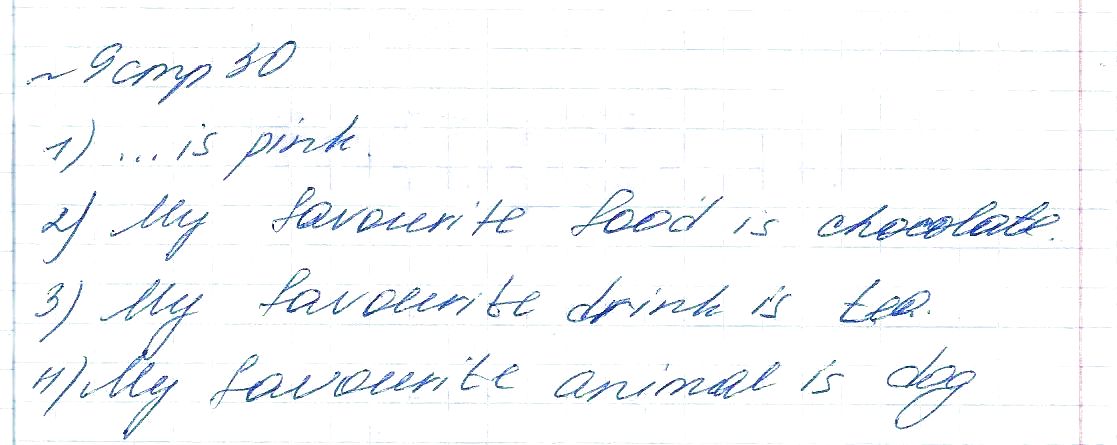 ~ 9 стр 30
1) ... is pink.
2) My favourite food is chocolate.
3) My favourite drink is tea.
4) My favourite animal is dog